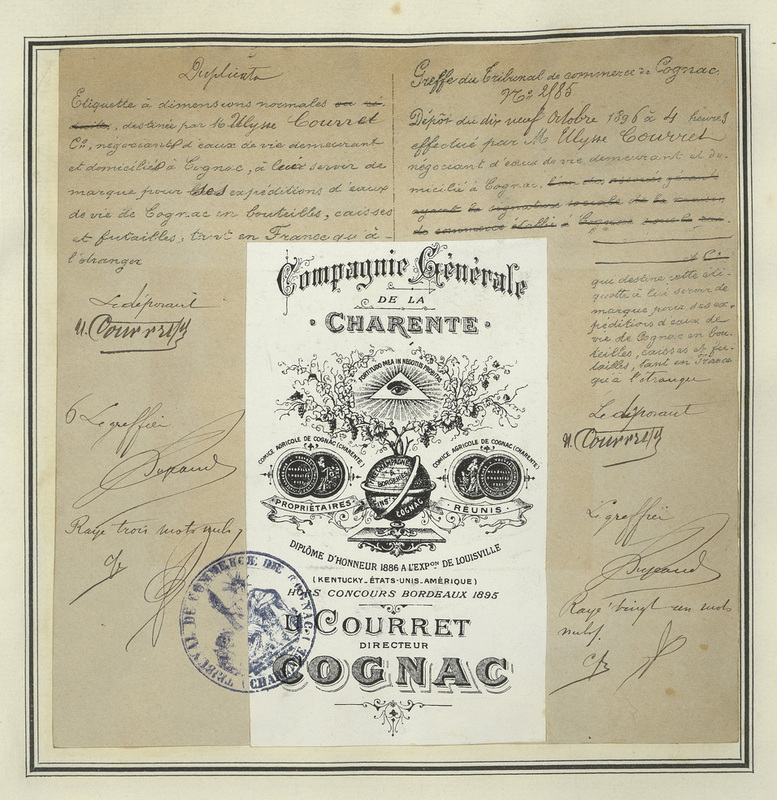 Duplicata
Etiquette à dimensions normales ou ré-
duite, destinée par M Ulysse Courret
Cie, négociant d'eaux de vie demeurant
et domicilié à Cognac, à lui servir de
marque pour ses expéditions d'eaux
de vie de Cognac en bouteilles, caisses
et futailles, tant en France qu'à
l'étranger
Le déposant
U. Courret
6 Le greffier
Rayé trois mots nuls
Greffe du Tribunal de commerce de Cognac.
No 2185
Dépôt du dix neuf Octobre 1896 à 4 heures
effectué par M Ulysse Courret
négociant d'eaux de vie demeurant et do-
micilié à Cognac.
et Cie
que destine cette éti-
quette à lui servir de
marque pour ses ex-
péditions d'eaux de
vie de Cognac en bou-
teilles, caisses et fu-
tailles, tant en France
qu'à l'étranger
Le déposant
U. Courret
Le greffier
Rayé vingt un mots
nuls.
Compagnie Générale
DE LA
· CHARENTE ·
FORTITUDO MEA IN NEGOTIS PROBITAS
COMICE AGRICOLE DE COGNAC (CHARENTE)
COMICE AGRICOLE DE COGNAC (CHARENTE)
CHAMPAGNE
&
BORDERIES
COGNAC
PROPRIÉTAIRES
RÉUNIS
DIPLÔME D'HONNEUR 1886 A L'EXPON DE LOUISVILLE
(KENTUCKY_ÉTATS-UNIS.AMÉRIQUE)
HORS CONCOURS BORDEAUX 1895
U COURRET
DIRECTEUR
COGNAC
TRIBUNAL DE COMMERCE DE COGNAC
(CHARENTE)